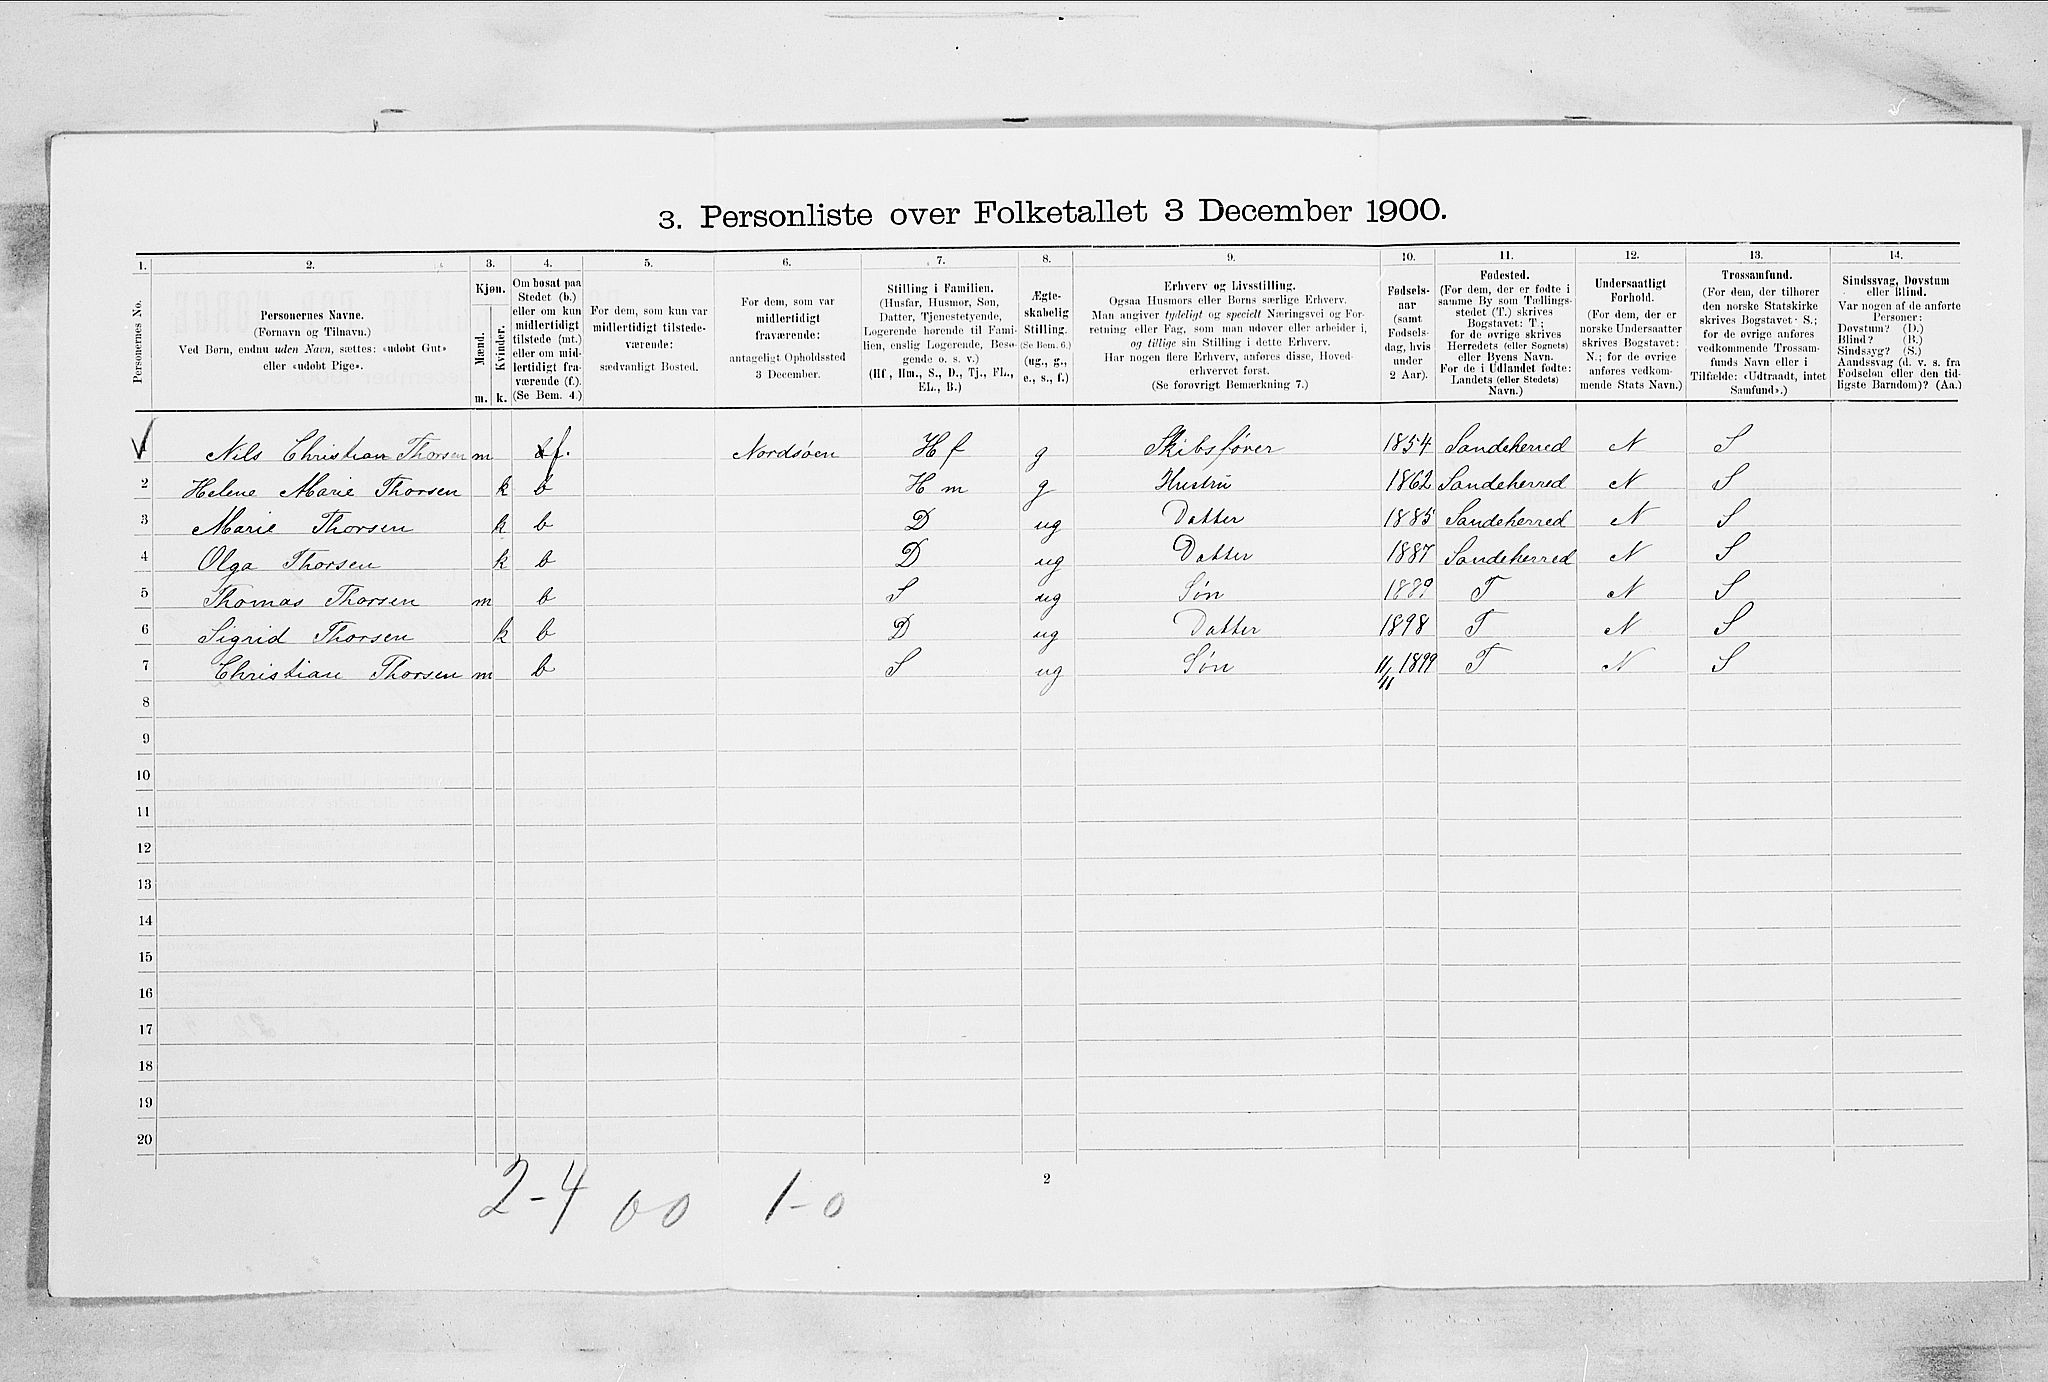 3. Personliste over Folketallet 3 December 1900.
1. 2. 3. 4. 5. 6. 7. 8. 9. 10. 11. 12. 13. 14.
Personernes No.
Personernes Navne.
(Fornavn og Tilnavn.)
Ved Børn, endnu uden Navn, sættes: «udøbt Gut»
eller «udøbt Pige».
Kjøn.
Mænd.
Kvinder.
m. k.
Om bosat paa
Stedet (b.)
eller om kun
midlertidigt
tilstede (mt.)
eller om mid-
lertidigt fra-
værende (f.).
(Se Bem. 4.)
For dem, som kun var
midlertidigt tilstede-
værende:
sædvanligt Bosted.
For dem, som var
midlertidigt
fraværende:
antageligt Opholdssted
3 December.
Stilling i Familien.
(Husfar, Husmor, Søn,
Datter, Tjenestetyende,
Logerende hørende til Fami-
lien, enslig Logerende, Besø-
gende o. s. v.)
(Hf., Hm., S., D., Tj., FL.,
EL., B.)
Ægte-
skabelig
Stilling.
(Se Bem. 6.)
(ug., g.,
e., s., f.)
Erhverv og Livsstilling.
Ogsaa Husmors eller Børns særlige Erhverv.
Man angiver tydeligt og specielt Næringsvei og For-
retning eller Fag, som man udøver eller arbeider i,
og tillige sin Stilling i dette Erhverv.
Har nogen flere Erhverv, anføres disse, Hoved-
erhvervet først.
(Se forøvrigt Bemærkning 7.)
Fødsels-
aar
(samt
Fødsels-
dag, hvis
under
2 Aar).
Fødested.
(For dem, der er fødte i
samme By som Tællings-
stedet (T.) skrives
Bogstavet: T.;
for de øvrige skrives
Herredets (eller Sognets)
eller Byens Navn.
For de i Udlandet fødte:
Landets (eller Stedets)
Navn.)
Undersaatligt
Forhold.
(For dem, der er
norske Undersaatter
skrives Bogstavet:
N.; for de øvrige
anføres vedkom-
mende Stats Navn.)
Trossamfund.
(For dem, der tilhører
den norske Statskirke
skrives Bogstavet · S.;
for de øvrige anføres
vedkommende Trossam-
funds Navn eller i
Tilfælde: «Udtraadt, intet
Samfund».)
Sindssvag, Døvstum
eller Blind.
Var nogen af de anførte
Personer:
Døvstum? (D.)
Blind? (B.)
Sindssyg? (S.)
Aandssvag (d. v. s. fra
Fødselen eller den tid-
ligste Barndom)? (Aa.)
1 Nils Christian Thorsen m f. Nordsøen Hf g Skibsfører 1854 Sandeherred N S
2 Helene Marie Thorsen k b Hm g Hustru 1862 Sandeherred N S
3 Marie Thorsen k b D ug Datter 1885 Sandeherred N S
4 Olga Thorsen k b D ug Datter 1887 Sandeherred N S
5 Thomas Thorsen m b S ug Søn 1889 T N S
6 Sigrid Thorsen k b D ug Datter 1898 T N S
7 Christian Thorsen m b S ug Søn 11/11 1899 T N S
8
9
10
11
12
13
14
15
16
17
18
19
20
2
2-4 00 1-0